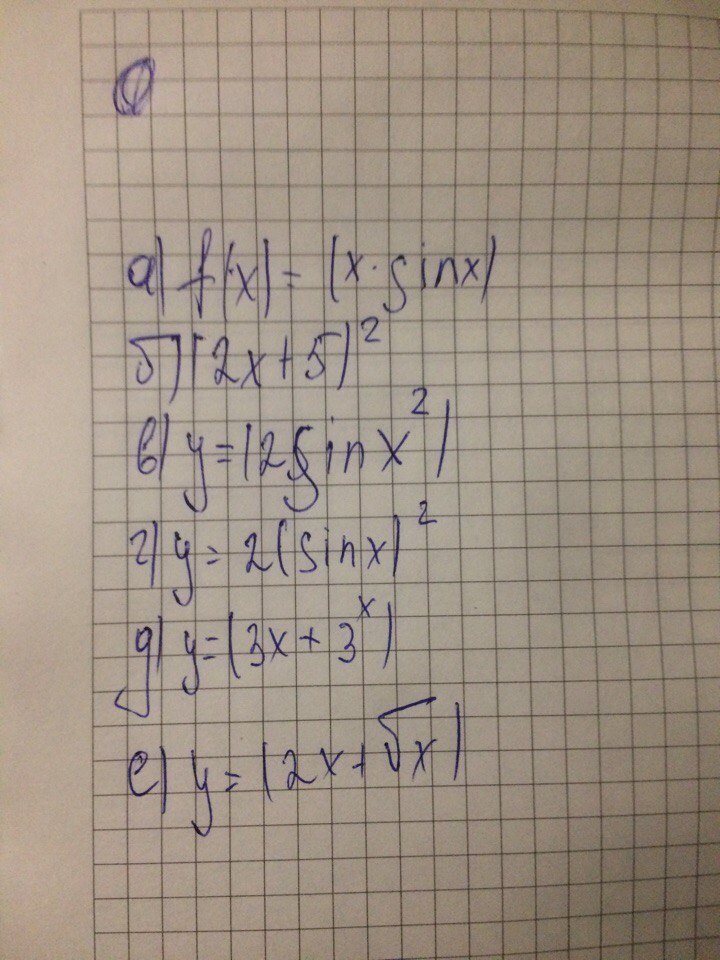 а) f(x) = (x · sinx)
б) (2x + 5)²
в) y = (2sinx²)
г) y = 2(sinx)²
д) y = (3x + 3ˣ)
е) y = (2x + √x)